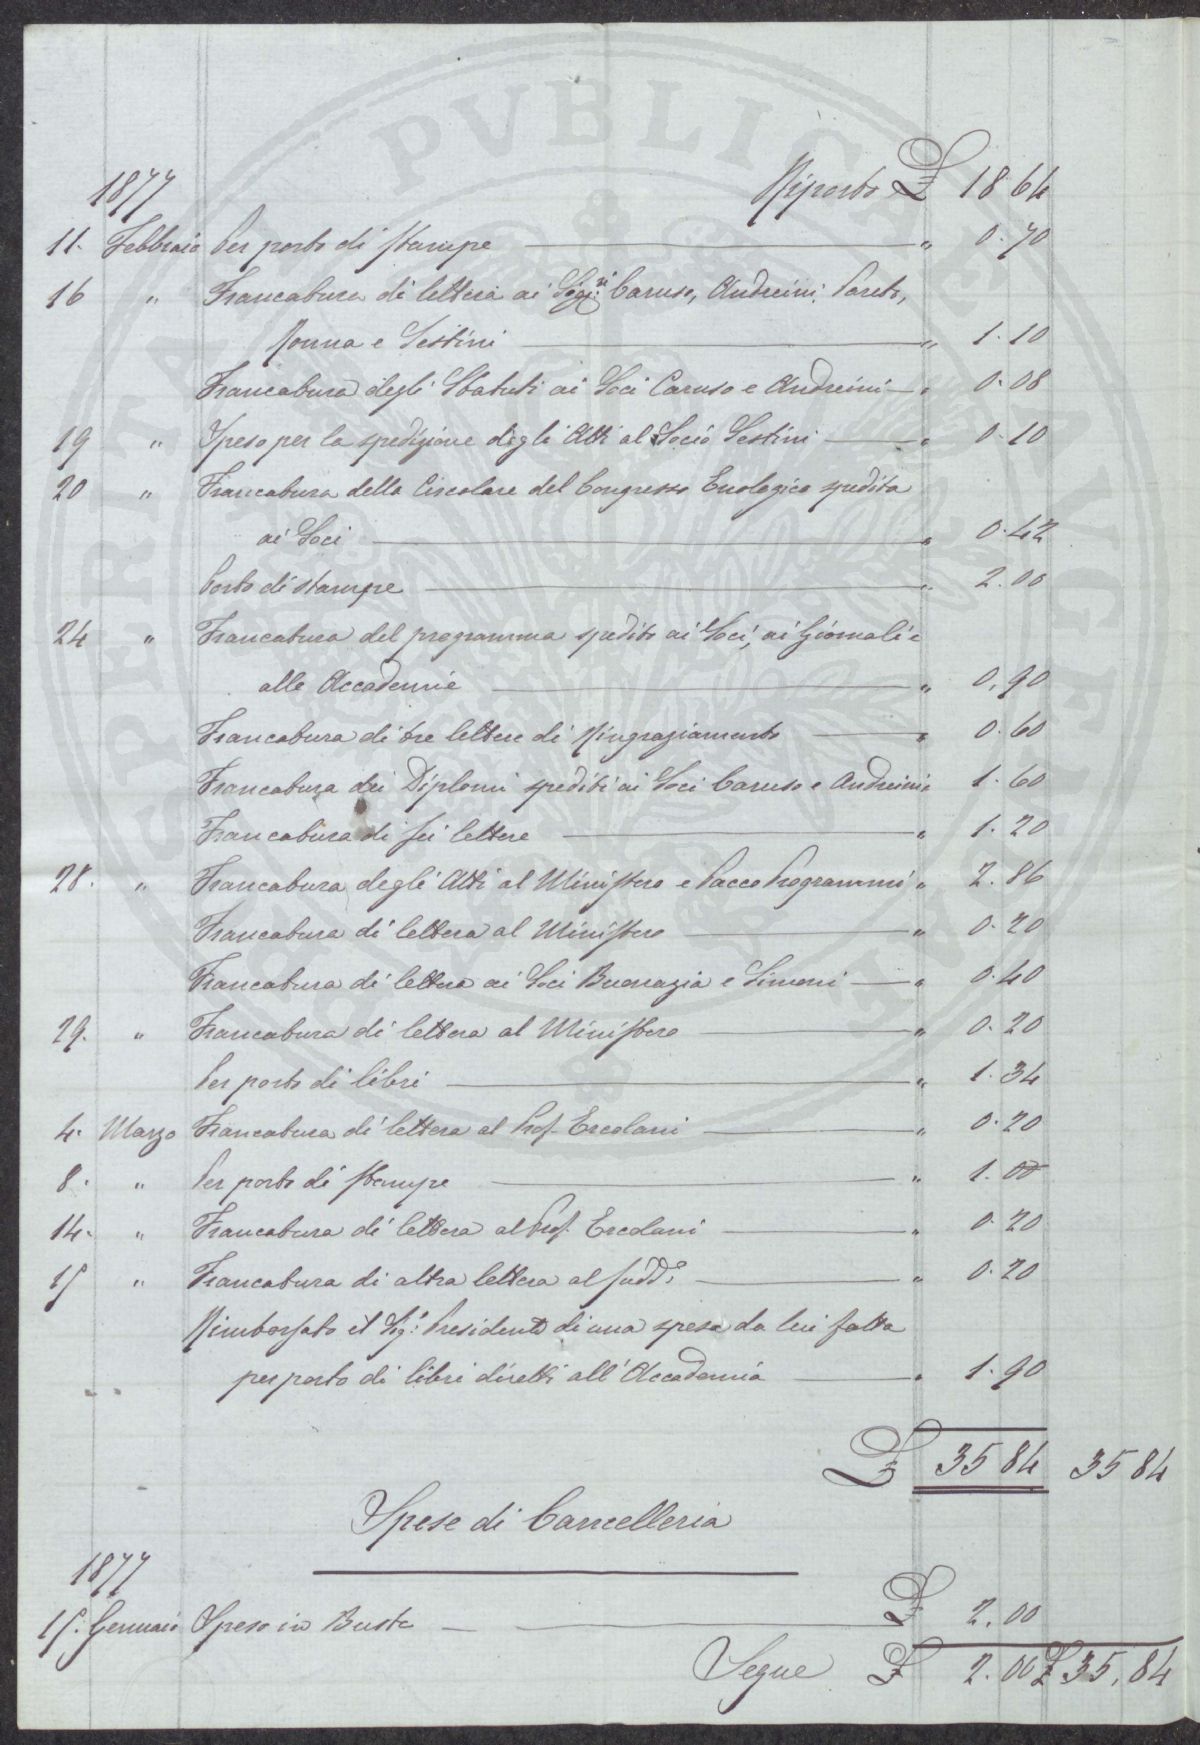 1877 Riporto £ 18 64
11. Febbraio Per porto di stampe " 0.70
16 " Francatura di lettera ai Sigg:ri Caruso, Andreini, Pareto,
Monna e Sestini " 1.10
Francatura degli Statuti ai Soci Caruso e Andreini " 0.08
19 " Speso per la spedizione degli Atti al Socio Sestini " 0.10
20 " Francatura della Circolare del Congresso Enologico spedita
ai Soci " 0.42
Porto di stampe " 2.00
24 " Francatura del programma spedito ai Soci, ai Giornali e
alle Accademie " 0,90
Francatura di tre lettere di Ringraziamento " 0.60
Francatura dei Diplomi spediti ai Soci Caruso e Andreini " 1.60
Francatura di sei lettere " 1.20
28. " Francatura degli Atti al Ministero e Pacco Programmi " 2.86
Francatura di lettera al Ministero " 0.20
Francatura di lettera ai Soci Buonazia e Simoni " 0.40
29. " Francatura di lettera al Ministero " 0.20
Per porto di libri " 1.34
4. Marzo Francatura di lettera al Prof. Ercolani " 0.20
8. " Per porto di stampe " 1.00
14. " Francatura di lettera al Prof. Ercolani " 0.20
15 " Francatura di altra lettera al sudd:o " 0.20
Rimborsato il Sig:r Presidente di una spesa da lui fatta
per porto di libri diretti all'Accademia " 1.90
£ 35 84 35 84
Spese di Cancelleria
1877
15. Gennaio Speso in Buste £ 2.00
Segue £ 2.00 £ 35,84
PVBLICAE
PROSPERITATIS
AVGENDAE